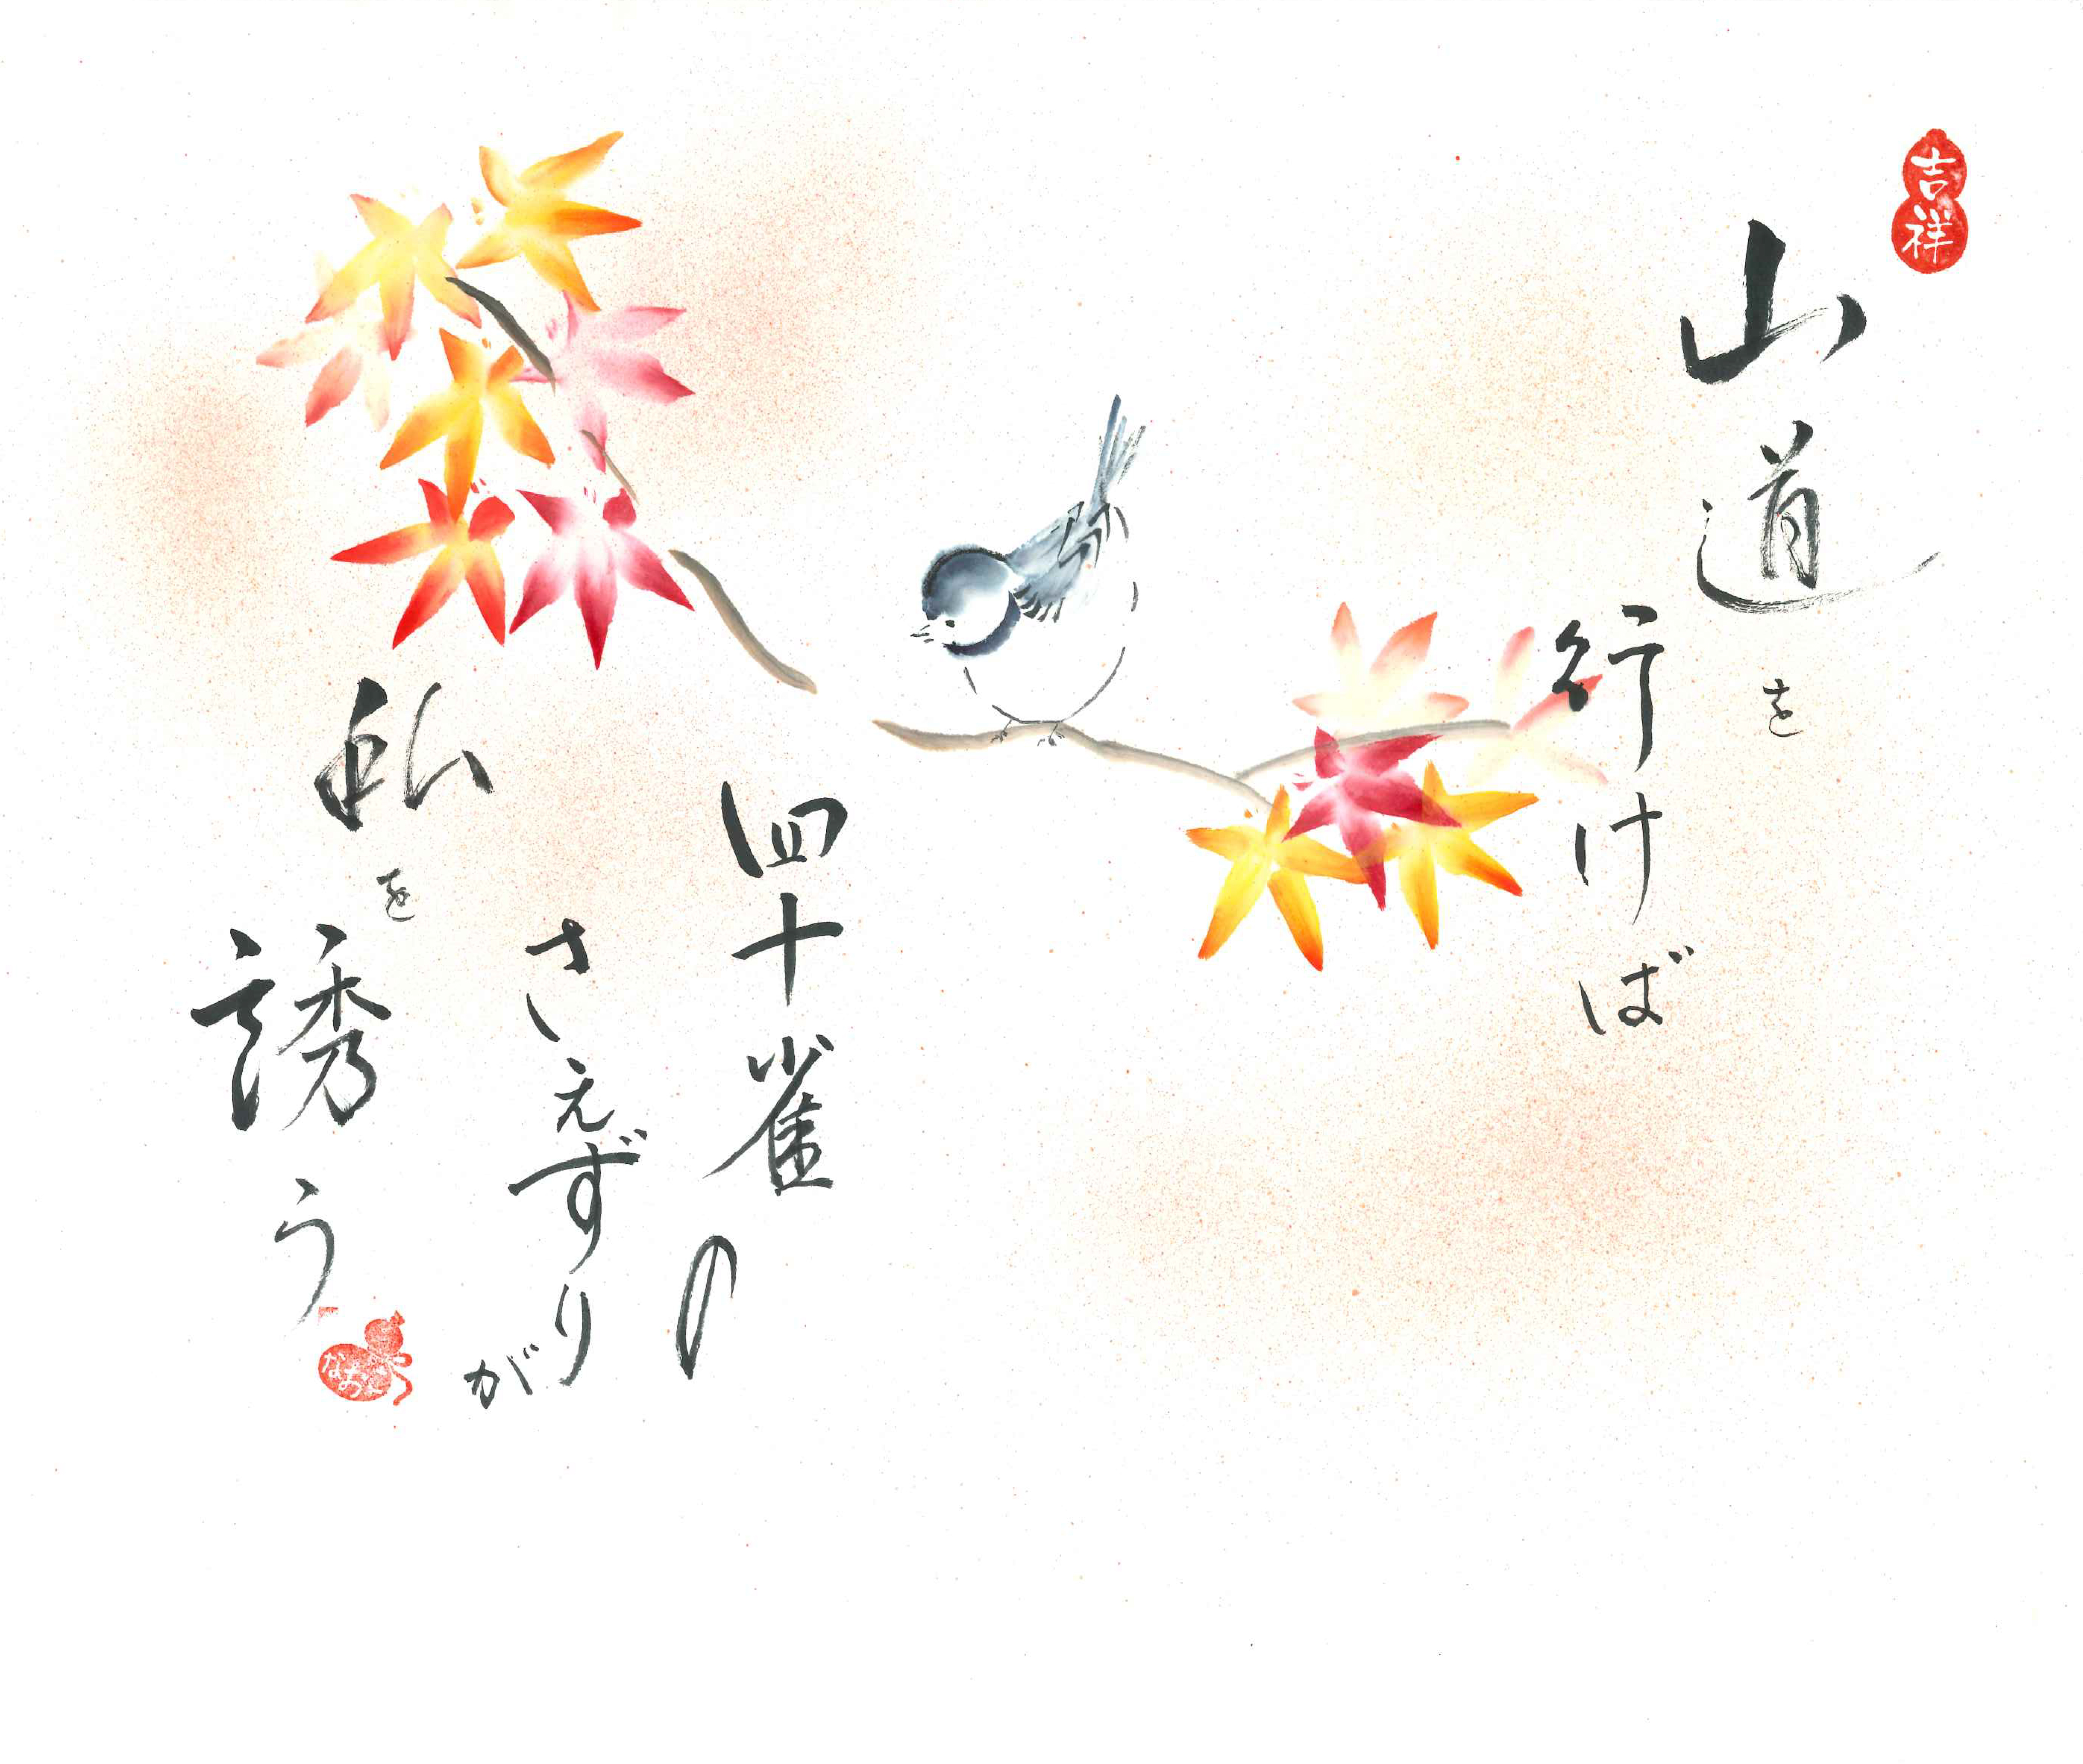 吉祥
山道を
行けば
四十雀の
さえずりが
私を
誘う
なおこ